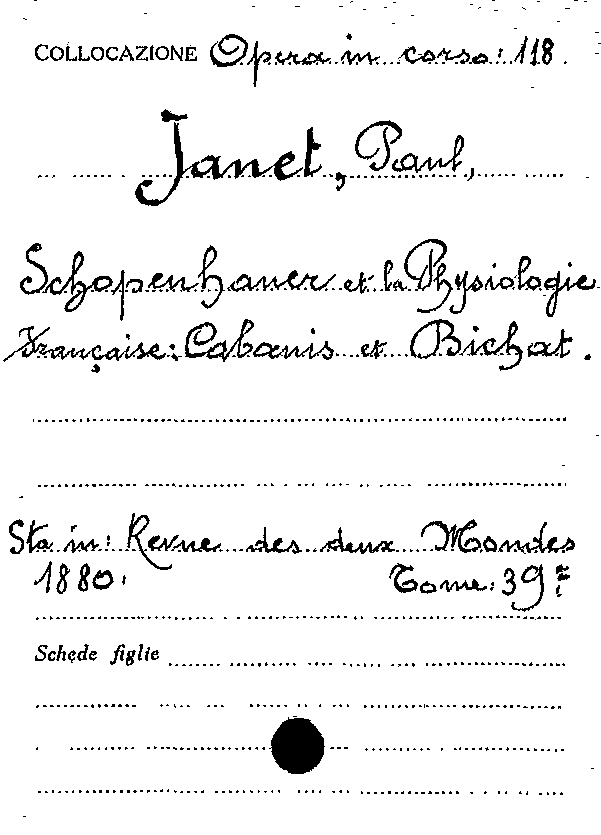 COLLOCAZIONE Opera in corso: 118.
Janet, Paul,
Schopenhauer et la Physiologie
Française: Cabanis et Bichat.
Sta in: Revue des deux Mondes
1880. Tome: 39
Schede figlie